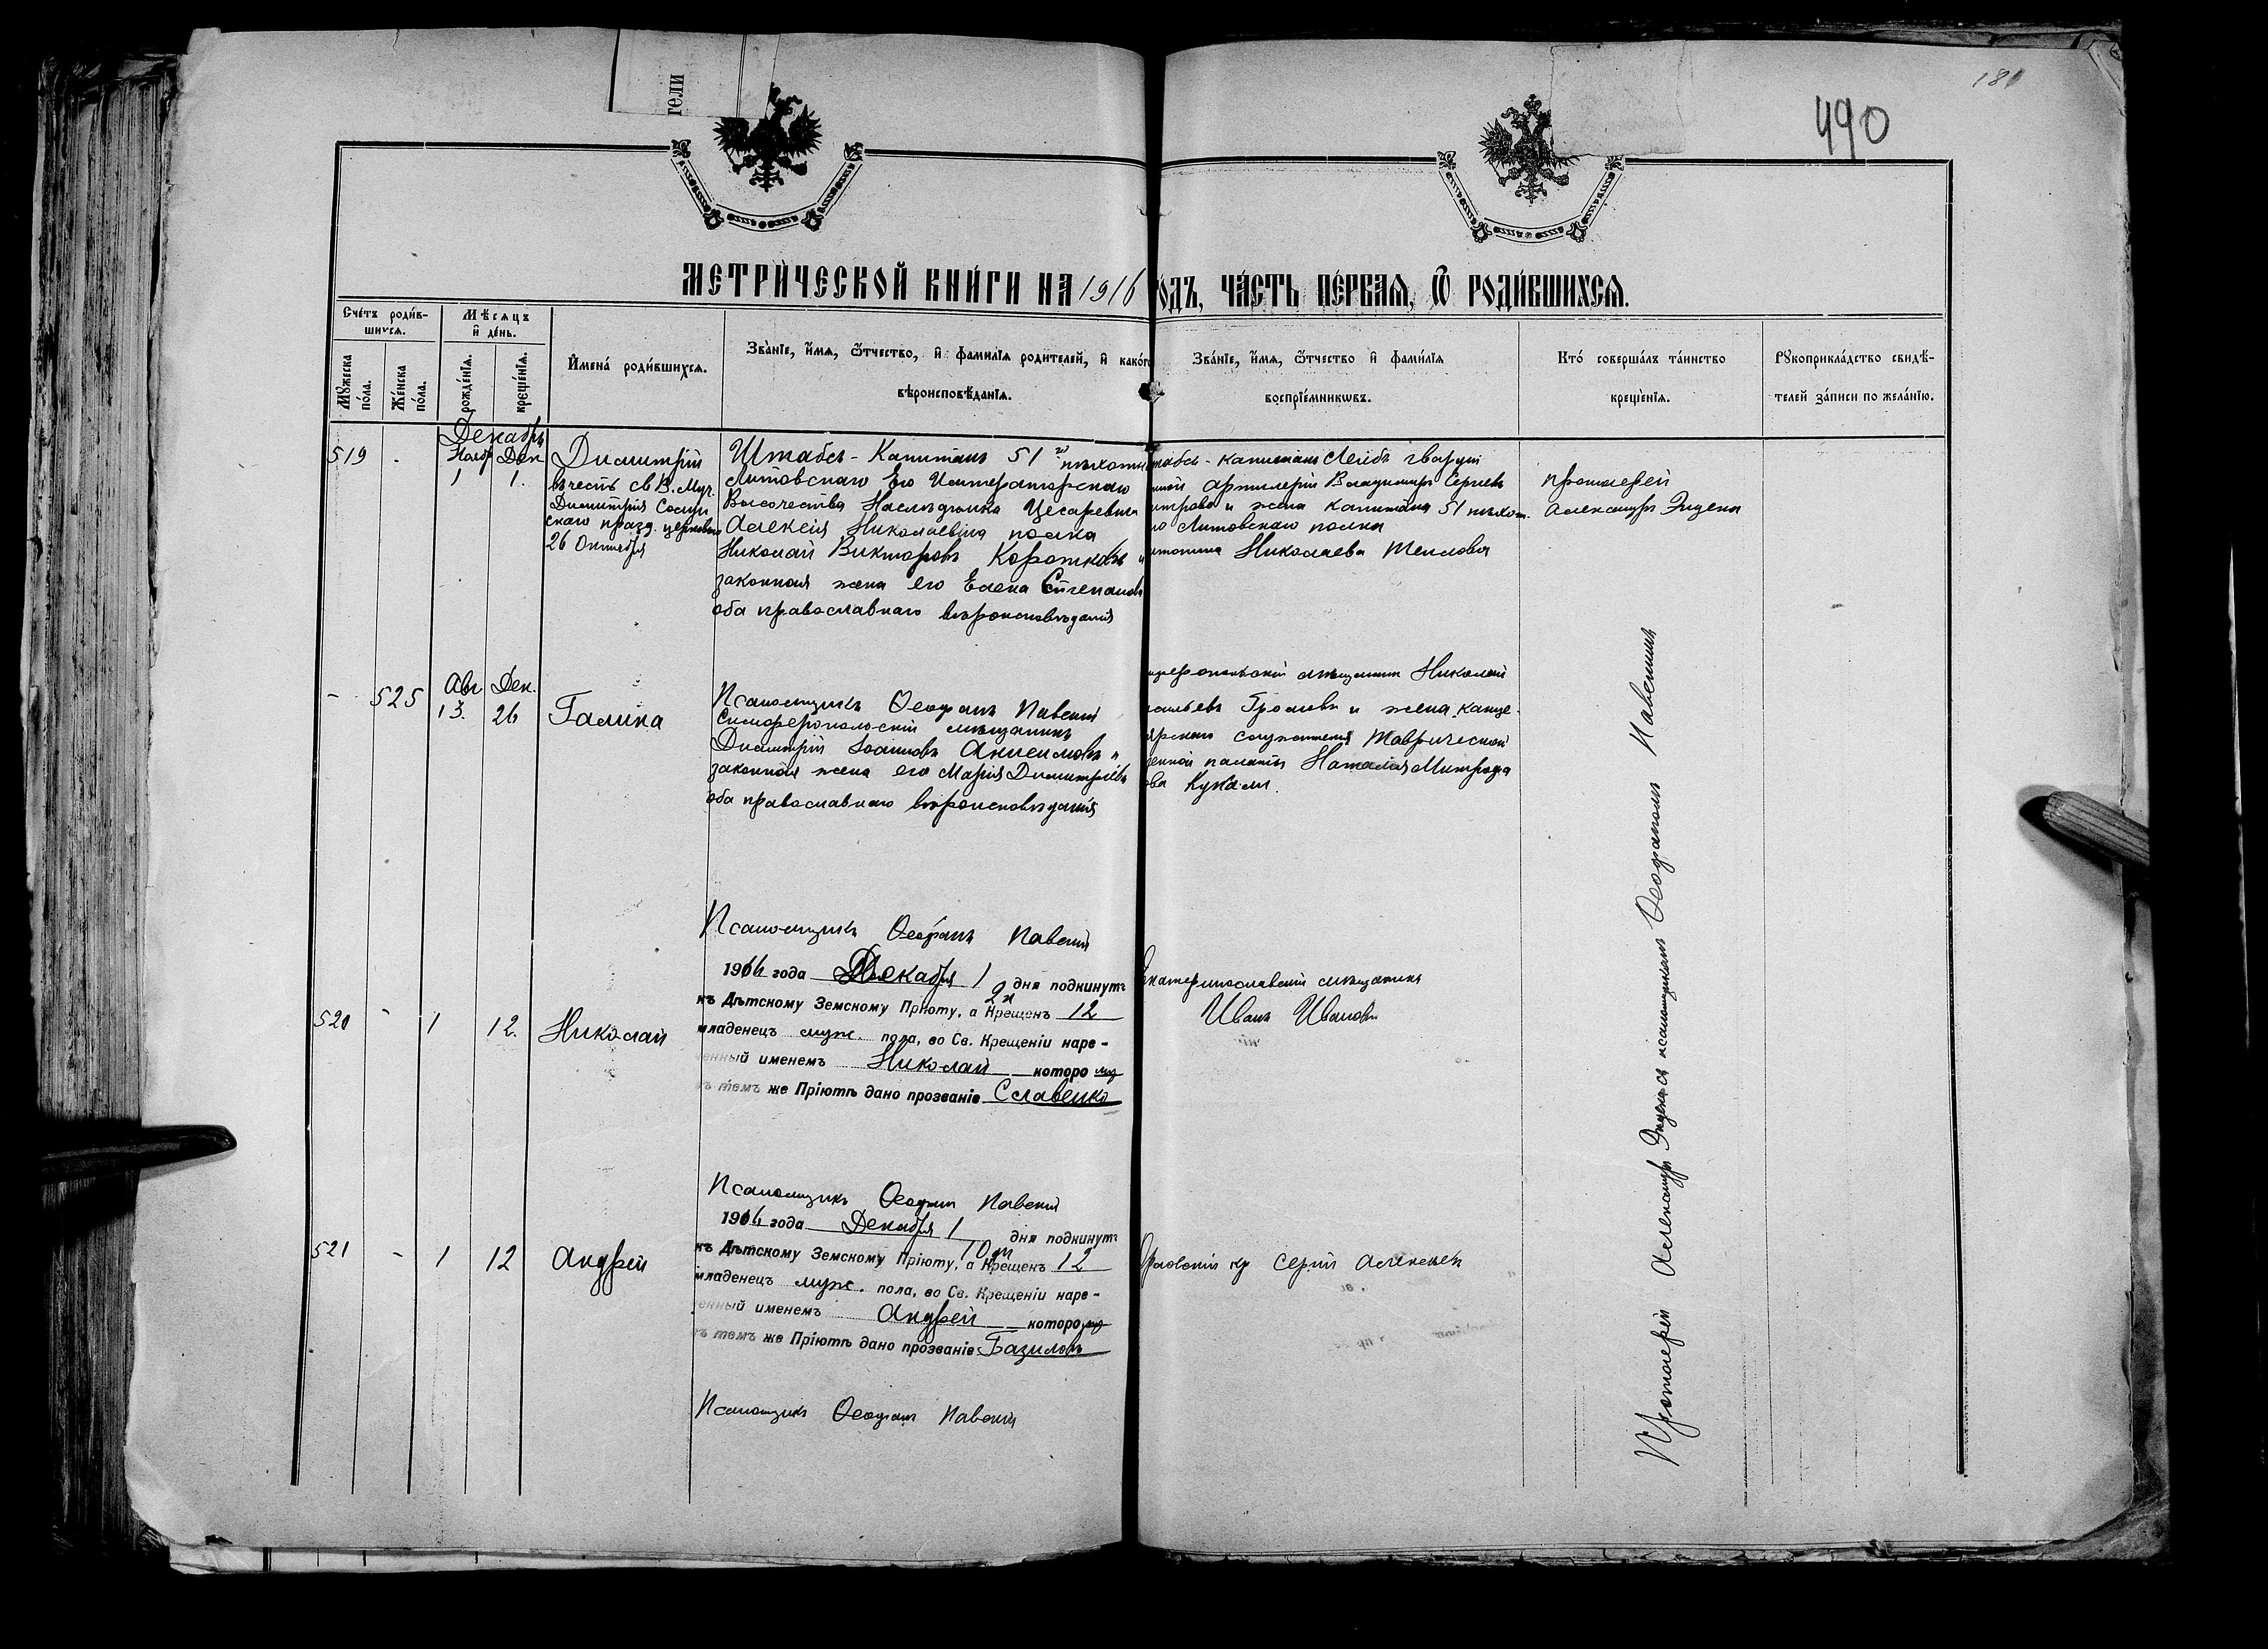 181
490
тели
МЕТРИЧЕСКОЙ КНИГИ НА 1916
ОДЪ, ЧАСТЬ ПЕРВАЯ, Ѡ РОДИВШИХСЯ.
Счетъ родив-
шихся.
Мужеска пола.
Женска пола.
Мѣсяцъ и день.
рожденія.
крещенія.
Имена родившихся.
Званіе, имя, ѿчество, и фамилія родителей, и какого
вѣроисповѣданія.
Званіе, имя, ѿчество и фамилія
воспріемниковъ.
Кто совершалъ таинство
крещенія.
Рукоприкладство свидѣ-
телей записи по желанію.
Декабрь
519 - Нояб 1 Дек 1.
Димитрій
въ честь св. В. Муч.
Димитрія Солун
скаго празд. церковью
26 Октября
Штабсъ-Капитанъ 51 го пѣхотн
Литовскаго Его Императорскаго
Высочества Наслѣдника Цесаревича
Алексія Николаевича полка
Николай Викторовъ Коротковъ и
законная жена его Елена Степанов
оба православнаго вѣроисповѣданія
табсъ-капитанъ Лейбъ гвардіи
артилеріи Владиміръ Сергѣев
и жена капитана 51 пѣхот.
го Литовскаго полка
Николаева Теплова
протоіерей
Александръ Эндека
Псаломщикъ Ѳеофанъ Павскій
- 525 Авг 13. Дек. 26 Галина
Симферопольскій мѣщанинъ
Димитрій Іоанновъ Анисимовъ и
законная жена его Марія Димитріев
оба православнаго вѣроисповѣданія
мферопольскій мѣщанинъ Николай
сильевъ Громовъ и жена канце-
лярскаго служителя Таврической
зенной палаты Наталия Митрофа
ова Кукали.
Псаломщикъ Ѳеофанъ Павскій
520 - 1 12. Николай
1916 года Декабря 1 дня подкинутъ
къ Дѣтскому Земскому Пріюту, а Крещенъ 12
младенецъ муж. пола, во Св. Крещеніи наре-
ченный именемъ Николай которо му
въ томъ же Пріютѣ дано прозваніе Славенко
катеринославскій мѣщанинъ
Иванъ Ивановъ
Псаломщикъ Ѳеофан Павскій
521 - 1 12 Андрей
1916 года Декабря 1 дня подкинутъ
къ Дѣтскому Земскому Пріюту, а Крещенъ 12
младенецъ муж. пола, во Св. Крещеніи наре-
ченный именемъ Андрей которо му
въ томъ же Пріютѣ дано прозваніе Базиловъ
Орловскій кр Сергій Алексѣев
Псаломщикъ Ѳеофанъ Павскій
Протоіерей Александръ Эндека съ псаломщикомъ Ѳеофаномъ Павскимъ